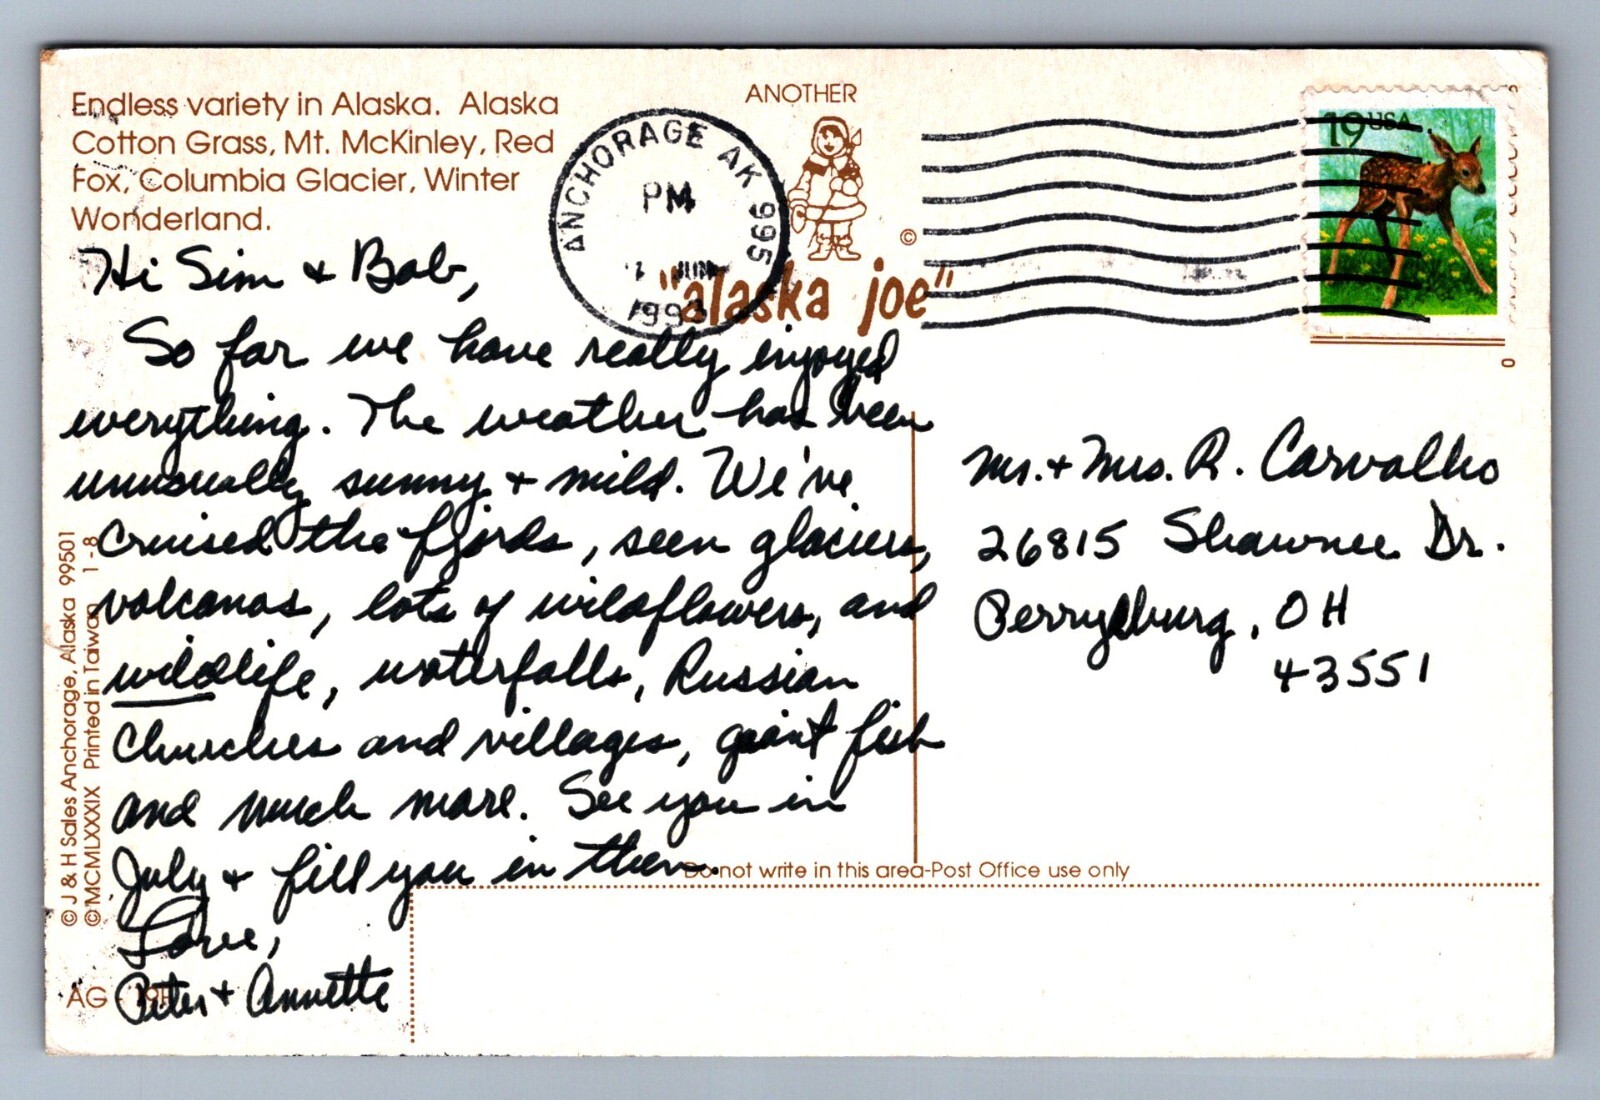 Endless variety in Alaska. Alaska
Cotton Grass, Mt. McKinley, Red
Fox, Columbia Glacier, Winter
Wonderland.
ANOTHER
©
"alaska joe"
ANCHORAGE AK 995
PM
JUN
199
19USA
Hi Sim + Bob,
So far we have really enjoyed
everything. The weather has been
unusually sunny + mild. We've
cruised the fjords, seen glaciers,
volcanos, lots of wildflowers, and
wildlife, waterfalls, Russian
Churches and villages, giant fish
and much more. See you in
July + fill you in then.
Love,
Peter + Annette
Mr. + Mrs. R. Carvalho
26815 Shawnee Dr.
Perrysburg, OH
43551
Do not write in this area-Post Office use only
© J & H Sales Anchorage, Alaska 99501
© MCMLXXXIX Printed in Taiwan 1-8
AG